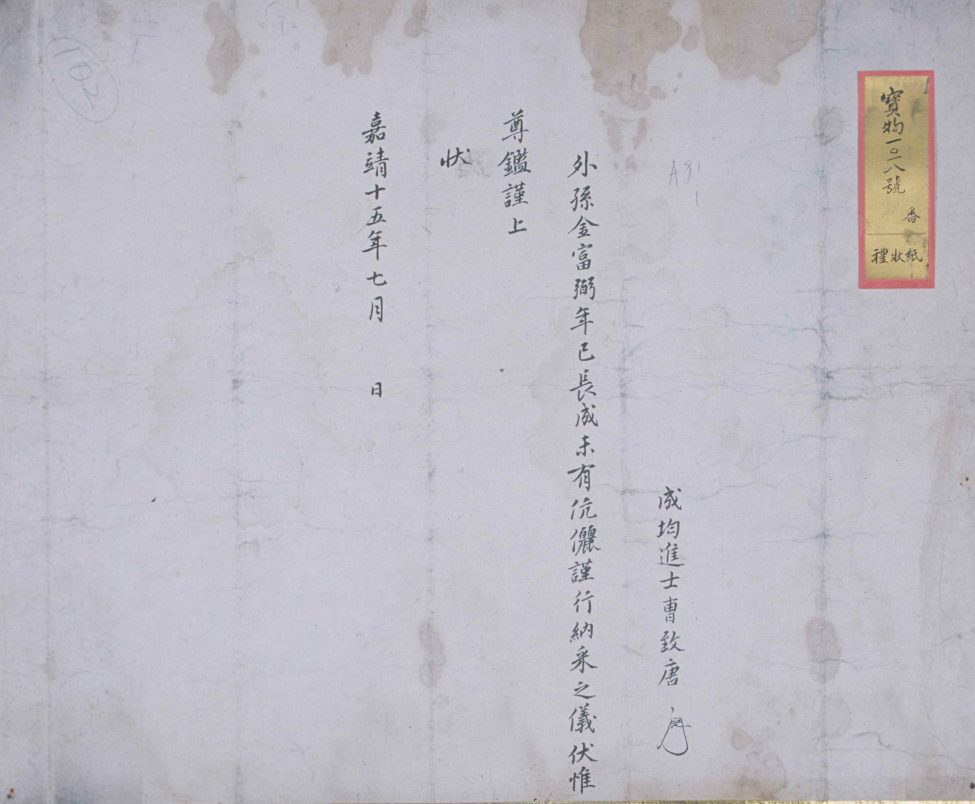 寶物一〇一八號
香
禮狀紙
成均進士曺致唐
外孫金富弼年已長成未有伉儷謹行納采之儀伏惟
尊鑑謹上
狀
嘉靖十五年七月　日
102